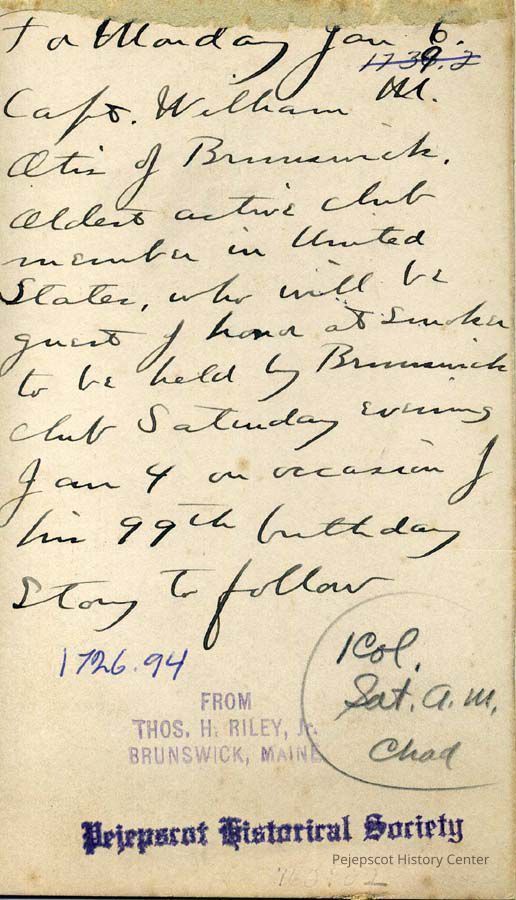 For Monday Jan 6.
1739.2
Capt. William M.
Otis of Brunswick.
Oldest active club
member in United
States, who will be
guest of honor at smoker
to be held by Brunswick
club Saturday evening
Jan 4 on occasion of
his 99th birthday
Story to follow
1726.94
1 Col.
Sat. A.M.
Chad
FROM
THOS. H. RILEY, Jr.
BRUNSWICK, MAINE
Pejepscot Historical Society
Pejepscot History Center